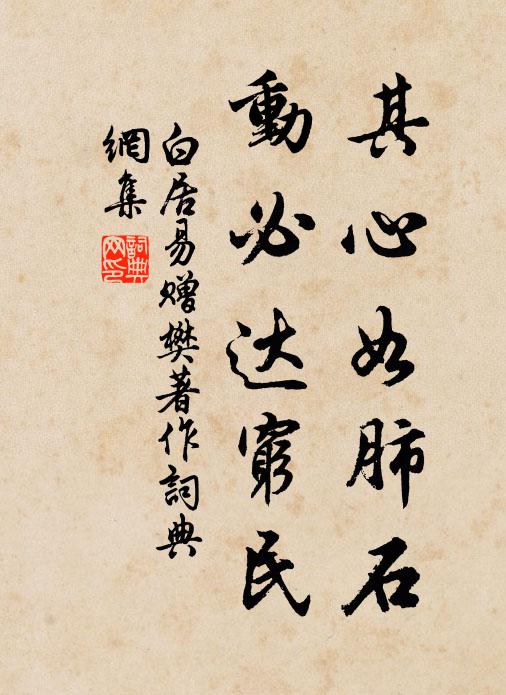 其心如肺石
動必达窮民
白居易贈樊著作詞典
網集
詞典
网印